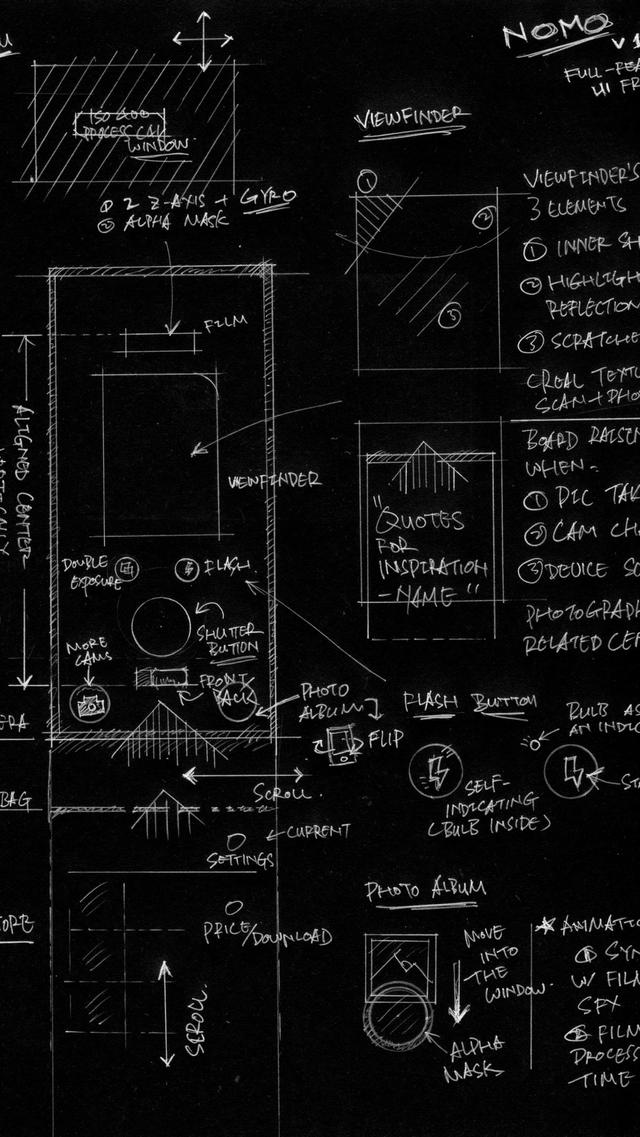 NOMO
V 1
FULL-FEA
UI FR
ISO 400
PROCESS
WINDOW
① 2 Z-AXIS + GYRO
② ALPHA MASK
FILM
ALIGNED CENTER
VERTICALLY
VIEWFINDER
DOUBLE
EXPOSURE
FLASH
SHUTTER
BUTTON
MORE
CAMS
FRONT
BACK
PHOTO
ALBUM
FLIP
ERA
SCROLL.
BAG
CURRENT
SETTINGS
ORE
PRICE/DOWNLOAD
SCROLL.
VIEWFINDER
①
②
③
VIEWFINDER'S
3 ELEMENTS
① INNER SH
② HIGHLIGH
REFLECTION
③ SCRATCHE
CREAL TEXTU
SCAN + PHO
"QUOTES
FOR
INSPIRATION
-NAME"
BOARD RAISIN
WHEN-
① PIC TAK
② CAM CH
③ DEVICE SC
PHOTOGRAPH
RELATED CE
FLASH BUTTON
SELF-
INDICATING
(BULB INSIDE)
BULB AS
AN INDIC
STA
PHOTO ALBUM
MOVE
INTO
THE
WINDOW.
ALPHA
MASK
ANIMATIO
① SYN
W/ FILM
SFX
② FILM
PROCESS
TIME